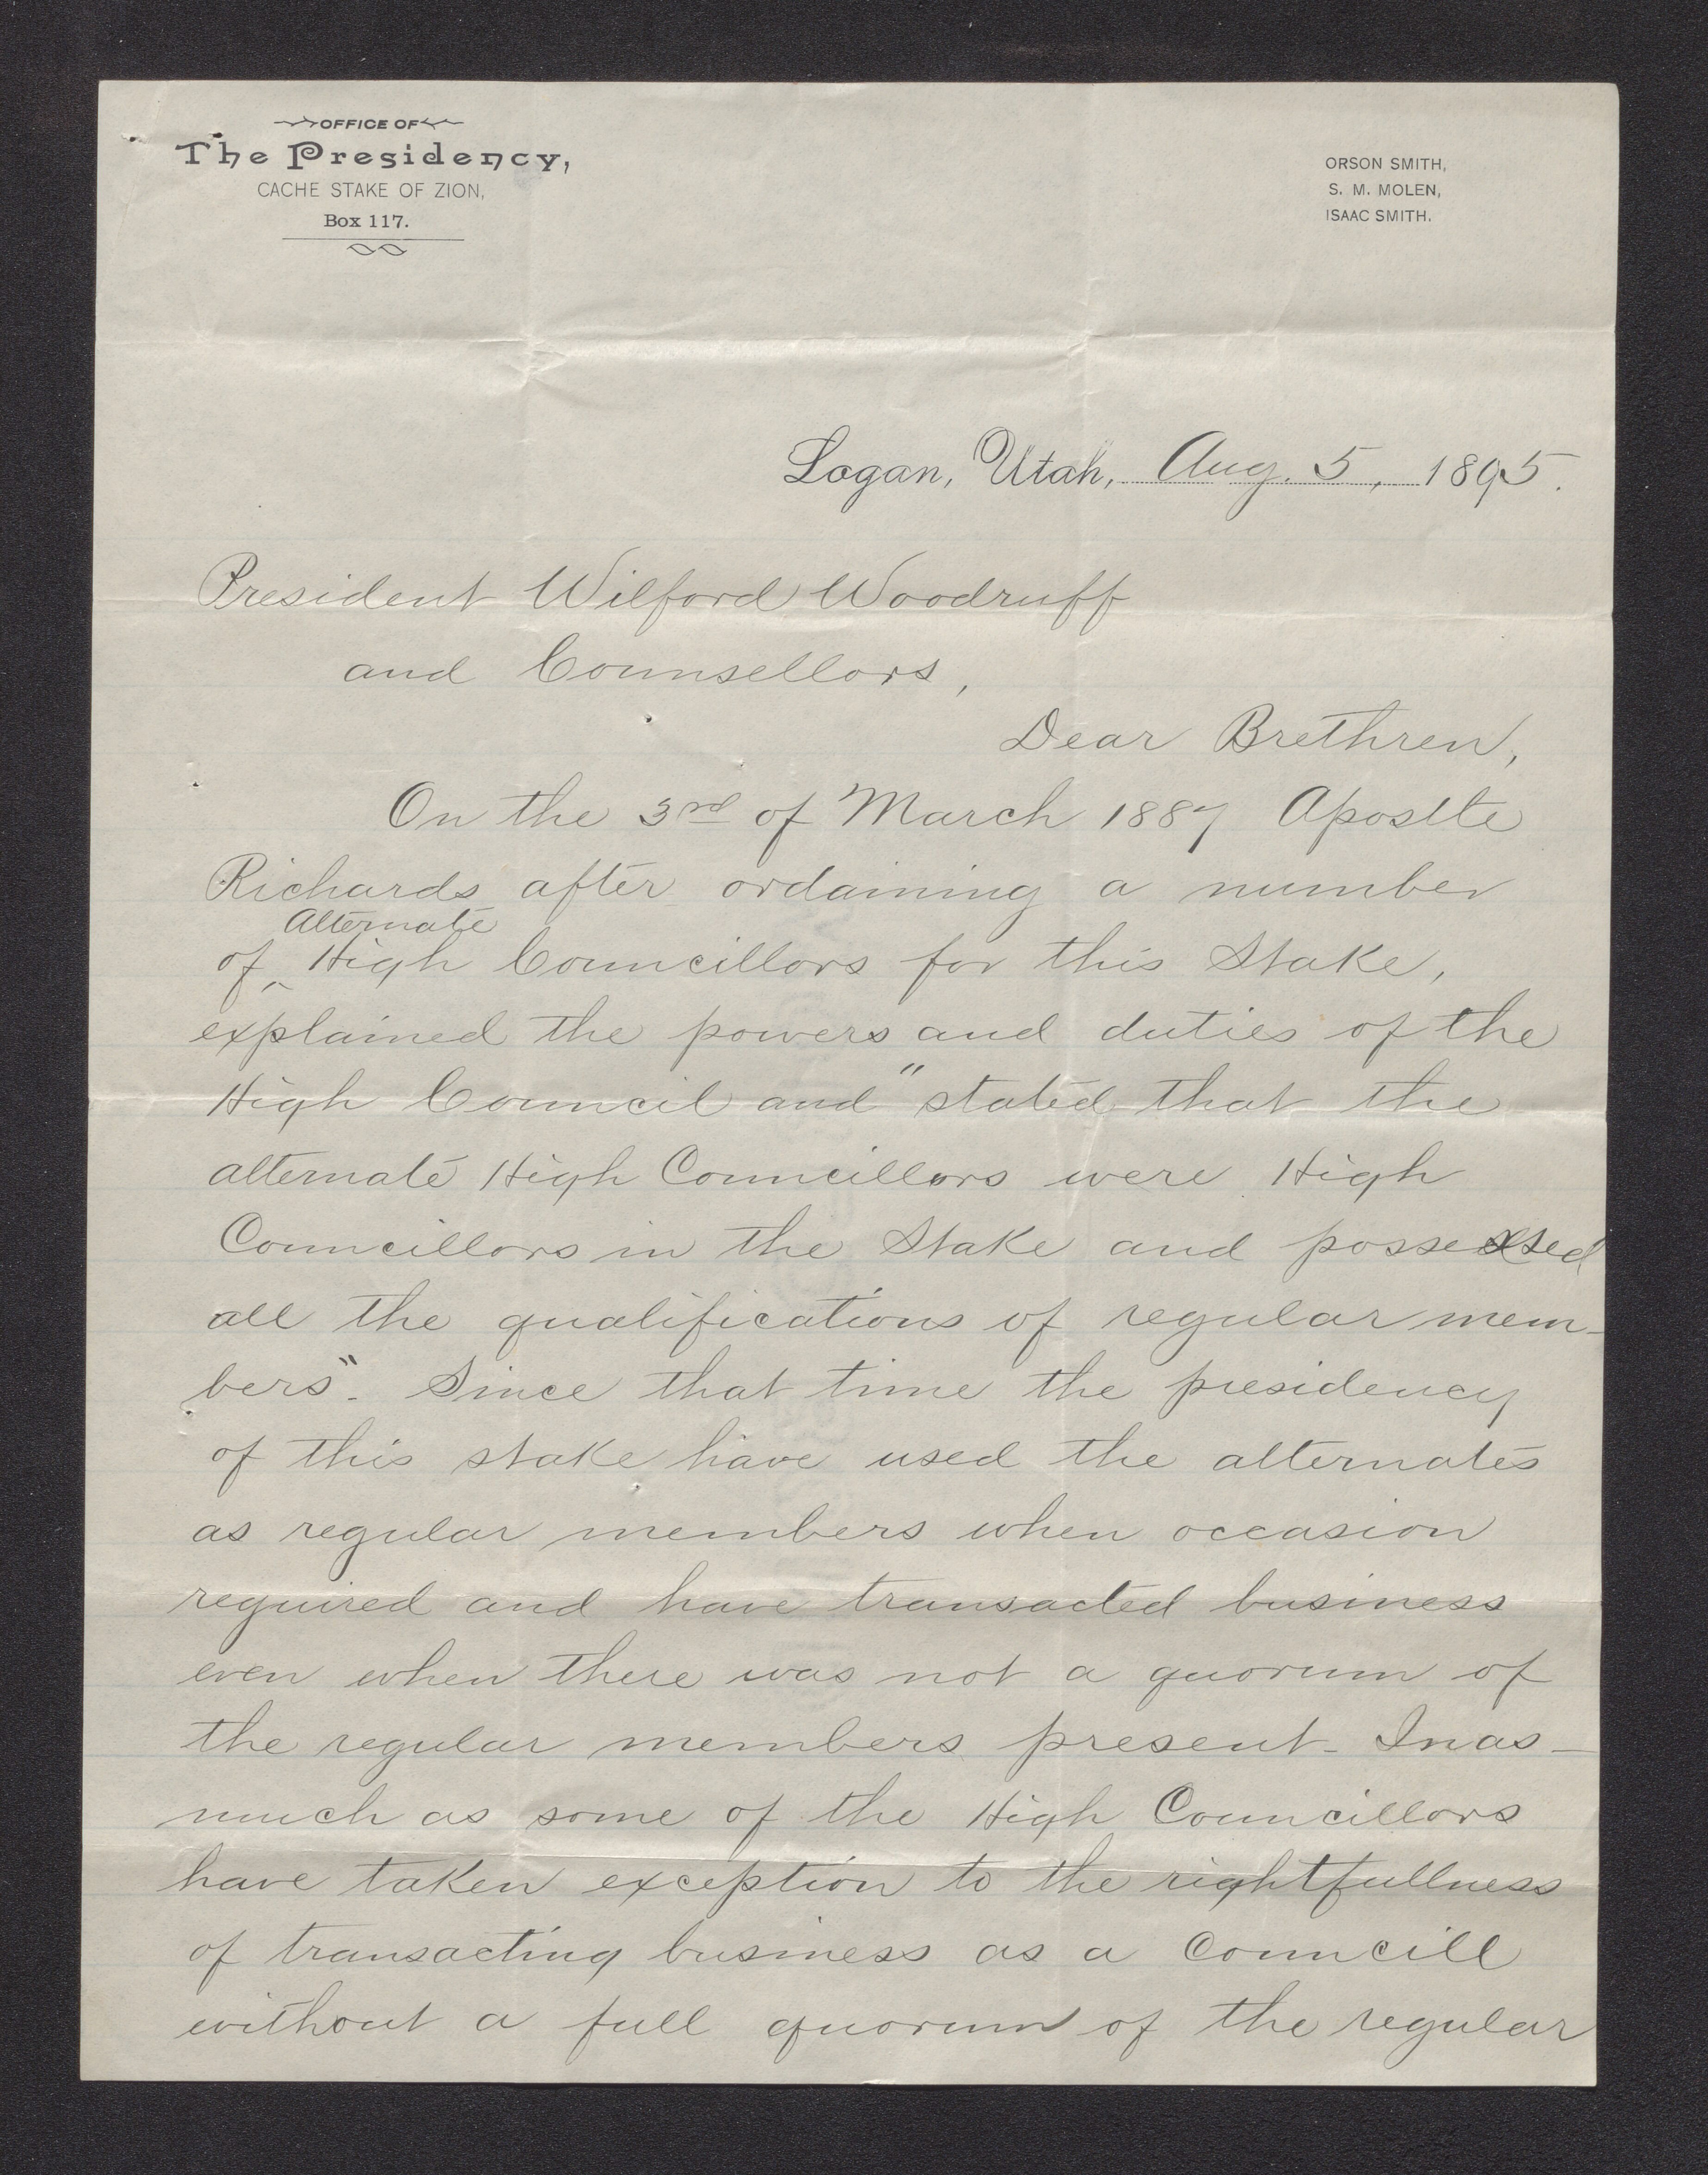 OFFICE OF
The Presidency,
CACHE STAKE OF ZION,
Box 117.
ORSON SMITH,
S. M. MOLEN,
ISAAC SMITH.
Logan, Utah, Aug. 5, 1895.
President Wilford Woodruff
and Counsellors,
Dear Brethren,
On the 3rd of March 1887 Aposlte
Richards after ordaining a number
Alternate
of ‸ High Councillors for this Stake,
explained the powers and duties of the
High Council and "stated that the
alternate High Councillors were High
Councillors in the Stake and possessed
all the qualifications of regular mem-
bers". Since that time the presidency
of this stake have used the alternates
as regular members when occasion
required and have transacted business
even when there was not a quorum of
the regular members present. Inas-
much as some of the High Councillors
have taken exception to the rightfullness
of transacting business as a Councill
without a full quorum of the regular